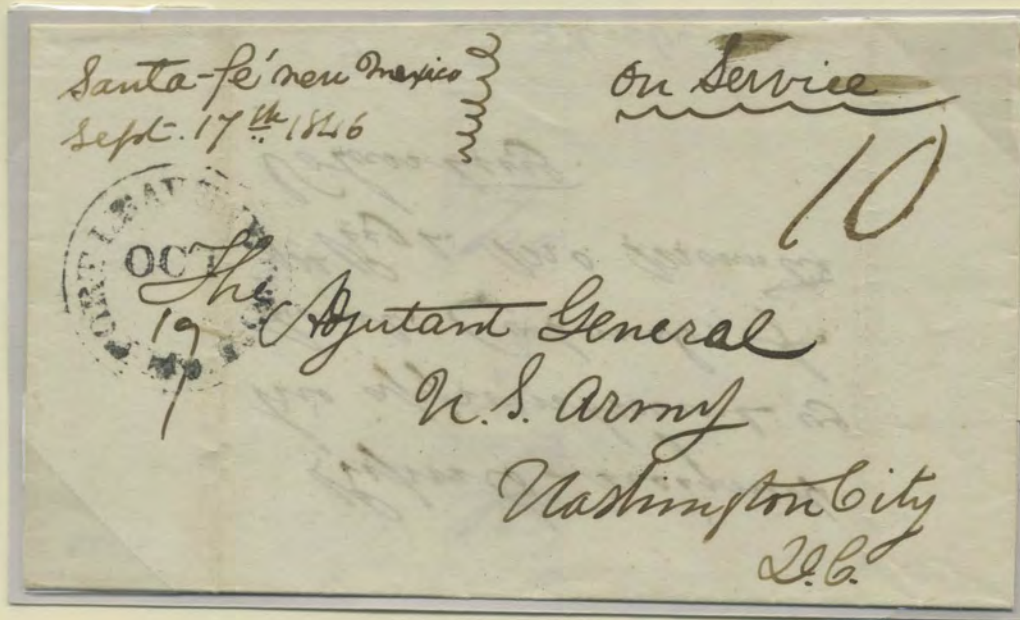 Santa-fé new Mexico
Sept. 17th 1846
on Service
10
FORT LEAV
OCT
19
The
Adjutant General
U. S. Army
Washington City
D.C.